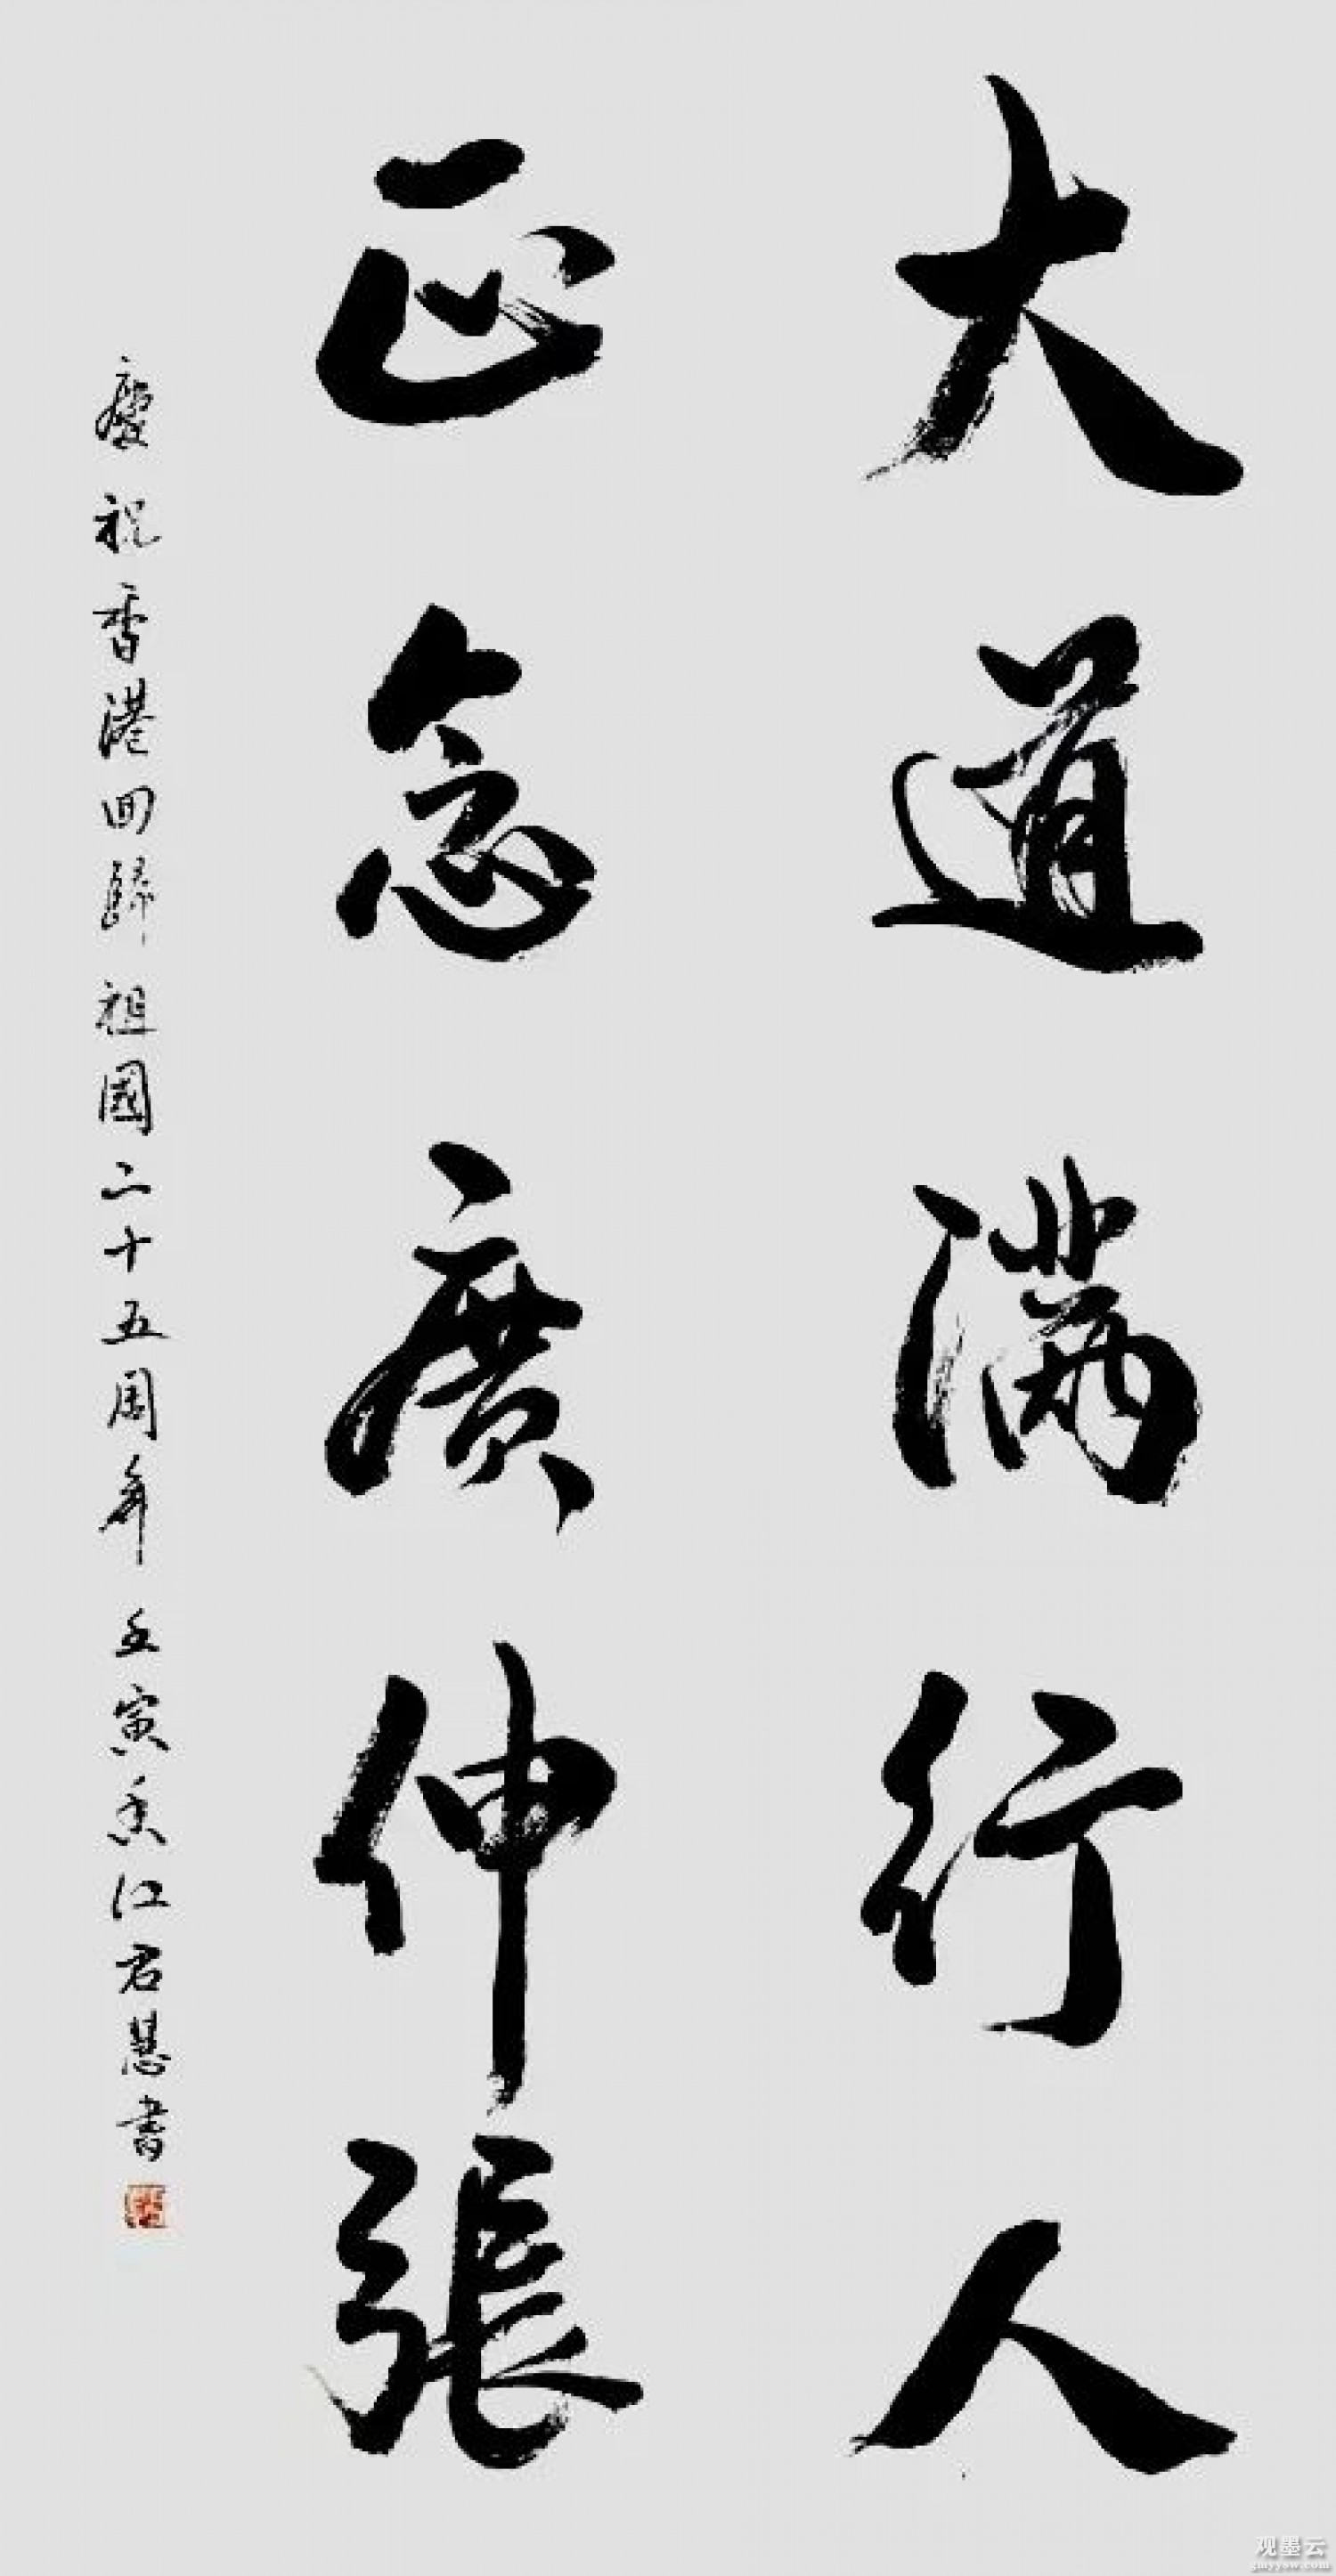 大道满行人
正念廣伸張
慶祝香港回歸祖國二十五周年 壬寅香江君慧書
观墨云
gmyysw.com